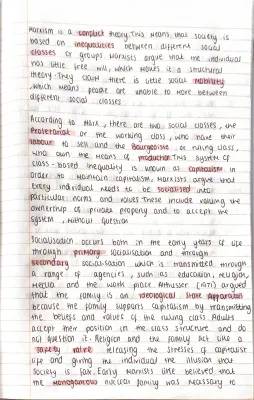 Marxism is a conflict theory. This means that society is
based on inequalities between different social
classes or groups. Marxists argue that the individual
has little free will, which makes it a structural
theory. They claim there is little social mobility
which means people are unable to move between
different social classes
According to Marx, there are two social classes, the
Proletariat or the working class, who have their
labour to sell and the Bourgeoisie or ruling class,
who own the means of production. This system of
class-based inequality is known as capitalism. In
order to maintain capitalism, Marxists argue that
every individual needs to be socialised into
particular norms and values. These include valuing the
ownership of private property and to accept the
system, without question
Socialisation occurs both in the early years of life
through primary socialisation and through
secondary socialisation which is transmitted through
a range of agencies, such as education, religion,
media and the work place. Althusser (1971) argued
that the family is an Ideological State Apparatus
because the family supports capitalism by transmitting
the beliefs and values of the ruling class. Adults
accept their position in the class structure and do
not question it. Religion and the family act like a
safety valve releasing the stresses of capitalist
life and giving the individual the illusion that
society is fair. Early Marxists believed that
the monogamous nuclear family was necessary to